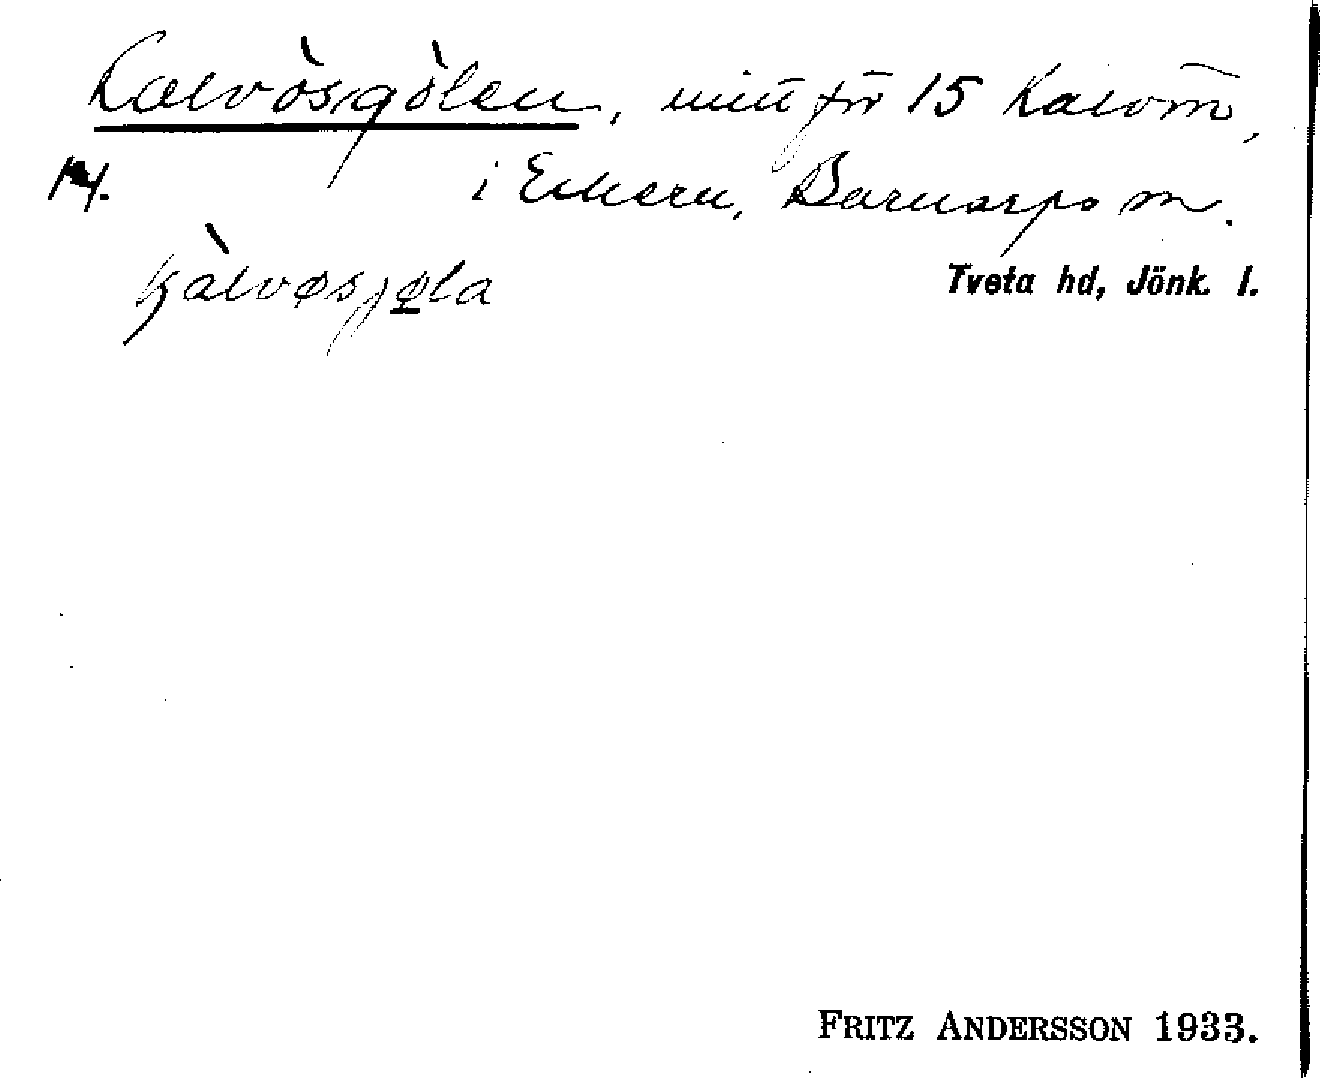 Kalvösgölen, mitt för 15 Kalvön,
14. i Eckern, Barnarps sn.
kalvøsjøla
Tveta hd, Jönk. l.
FRITZ ANDERSSON 1933.